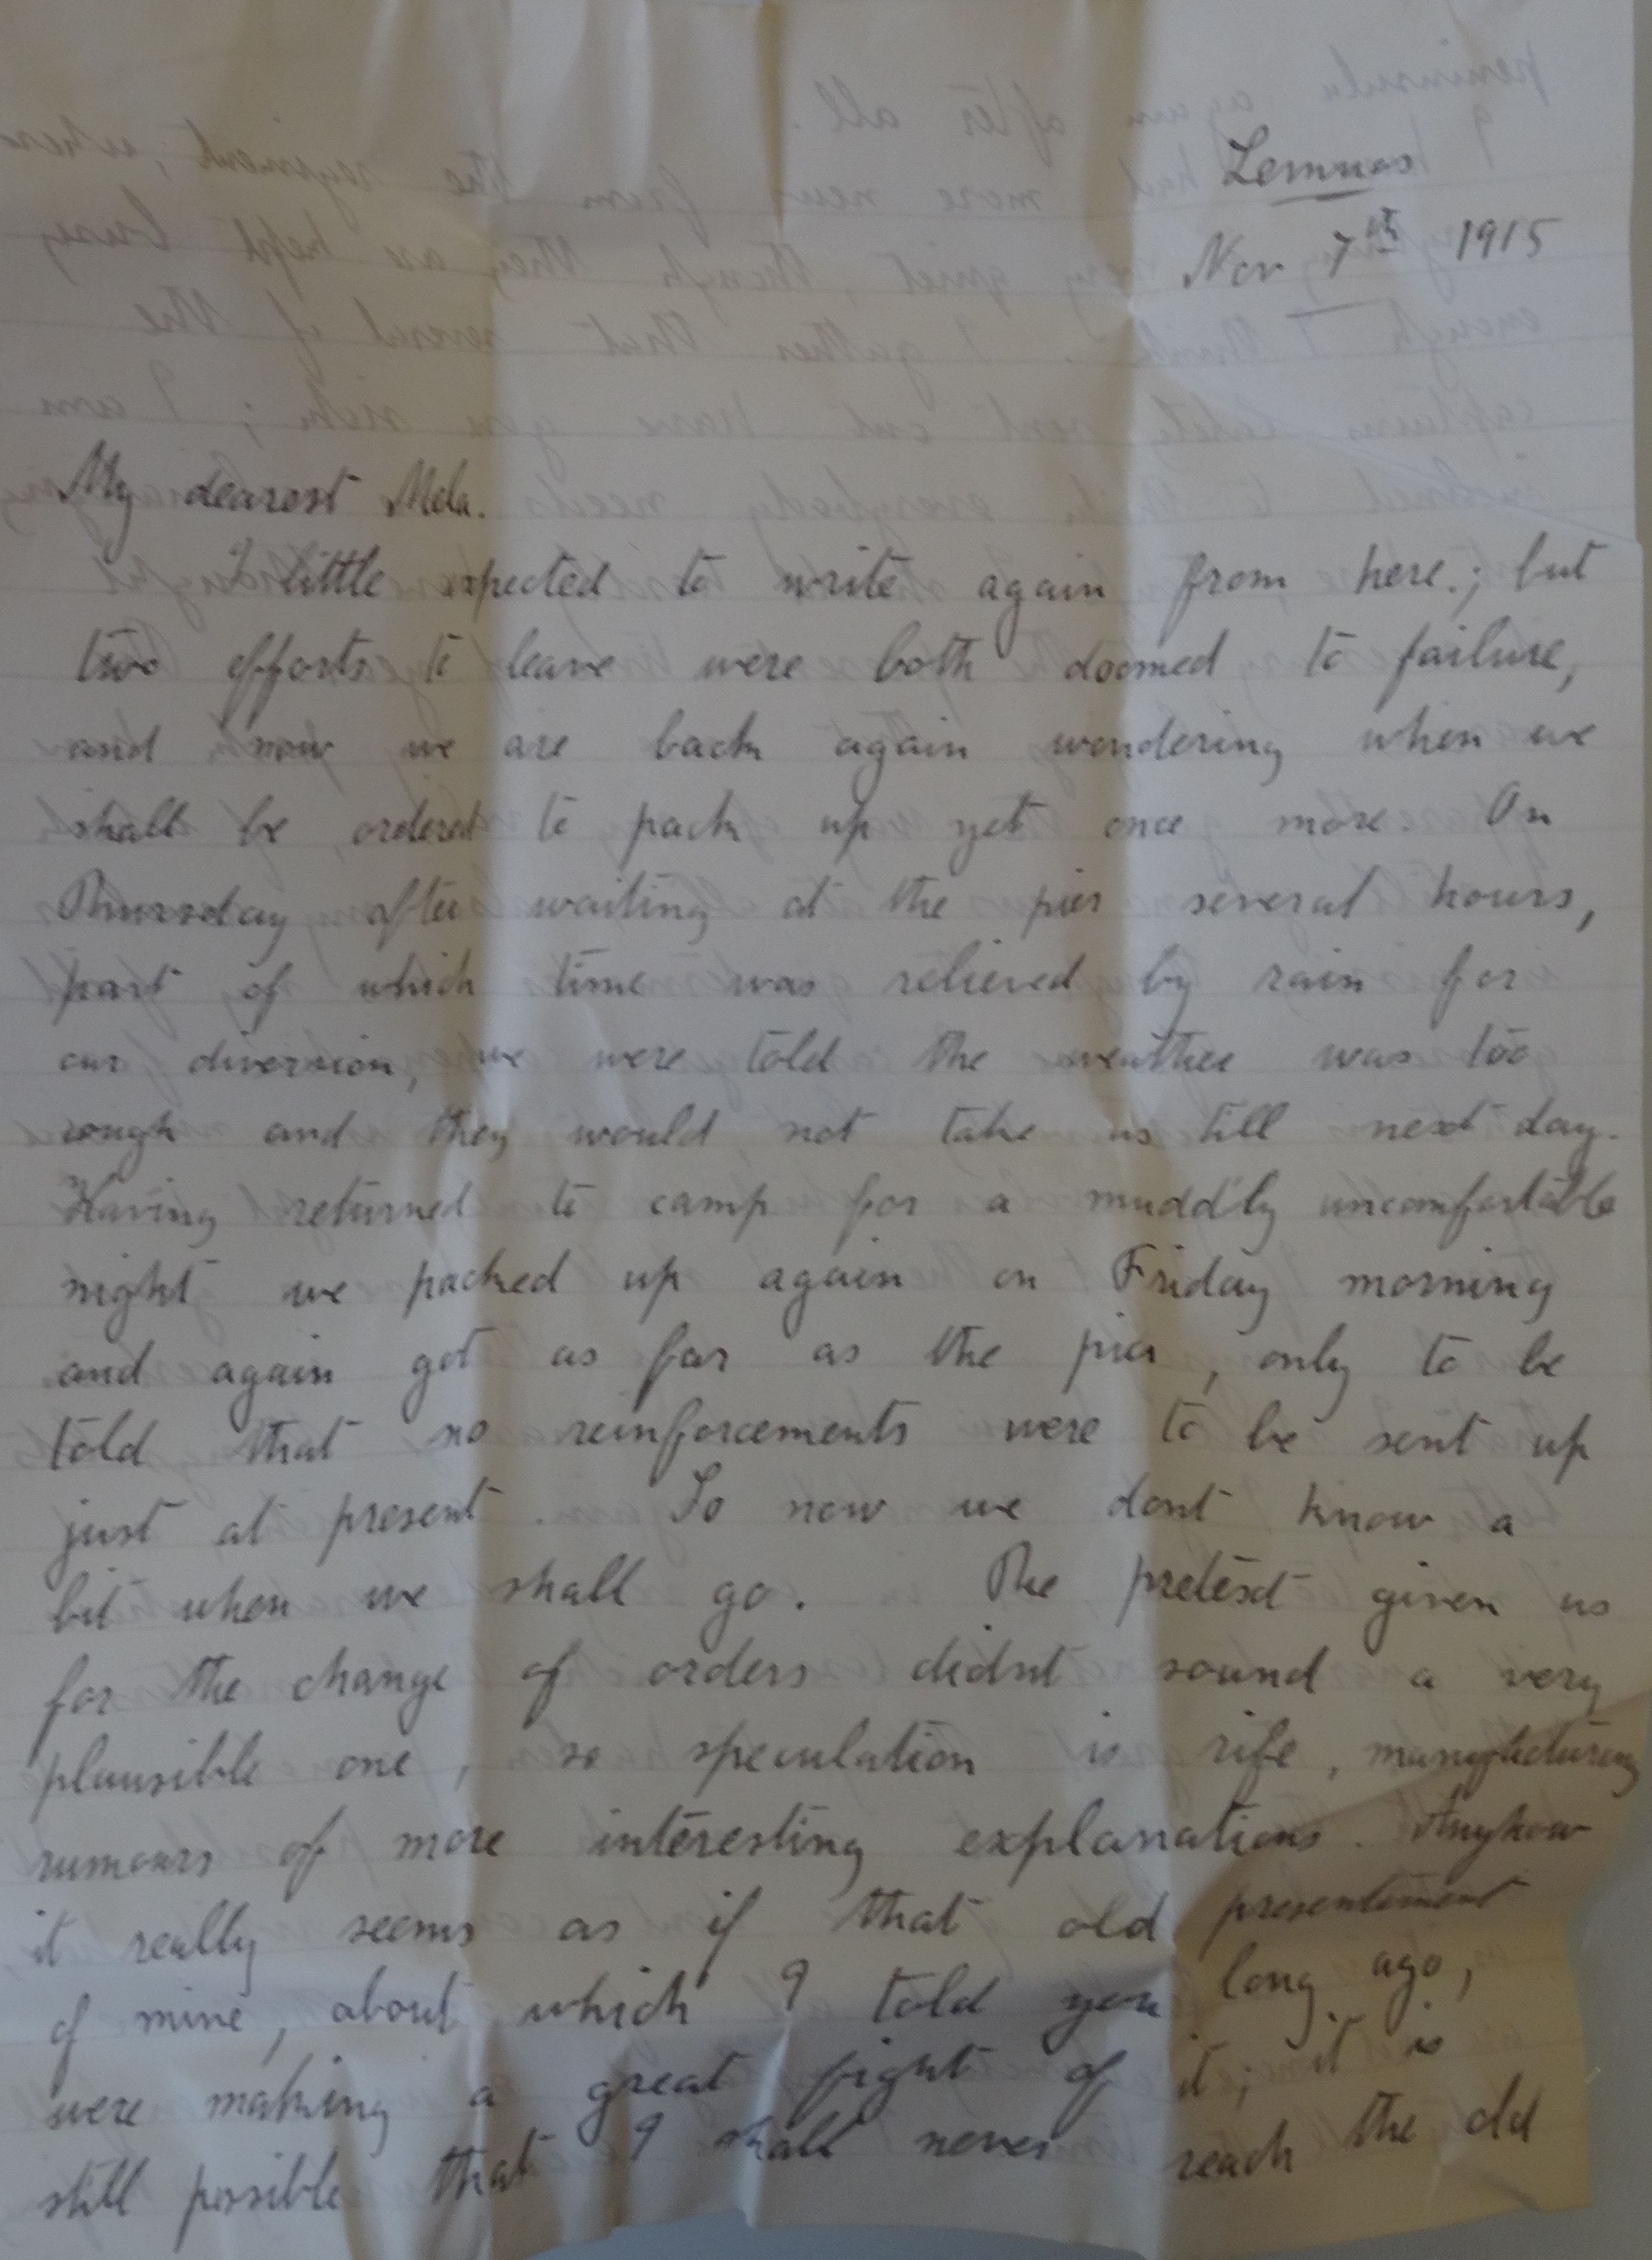 Lemnos
Nov 7th 1915
My dearest Mela.
I little expected to write again from here.; but
two efforts to leave were both doomed to failure,
and now we are back again wondering when we
shall be, ordered to pack up yet once more. On
Thursday after waiting at the pier several hours,
part of which time was relieved by rain for
our diversion, we were told the weather was too
rough and they would not take us till next day.
Having returned to camp for a muddly uncomfortable
night we packed up again on Friday morning
and again got as far as the pier, only to be
told that no reinforcements were to be sent up
just at present. So now we dont know a
bit when we shall go. The pretext given us
for the change of orders didnt sound a very
plausible one, so speculation is rife, manufacturing
rumours of more interesting explanations. Anyhow
it really seems as if that old presentiment
of mine, about which I told you long ago,
were making a great fight of it; it is
still possible that I shall never reach the old